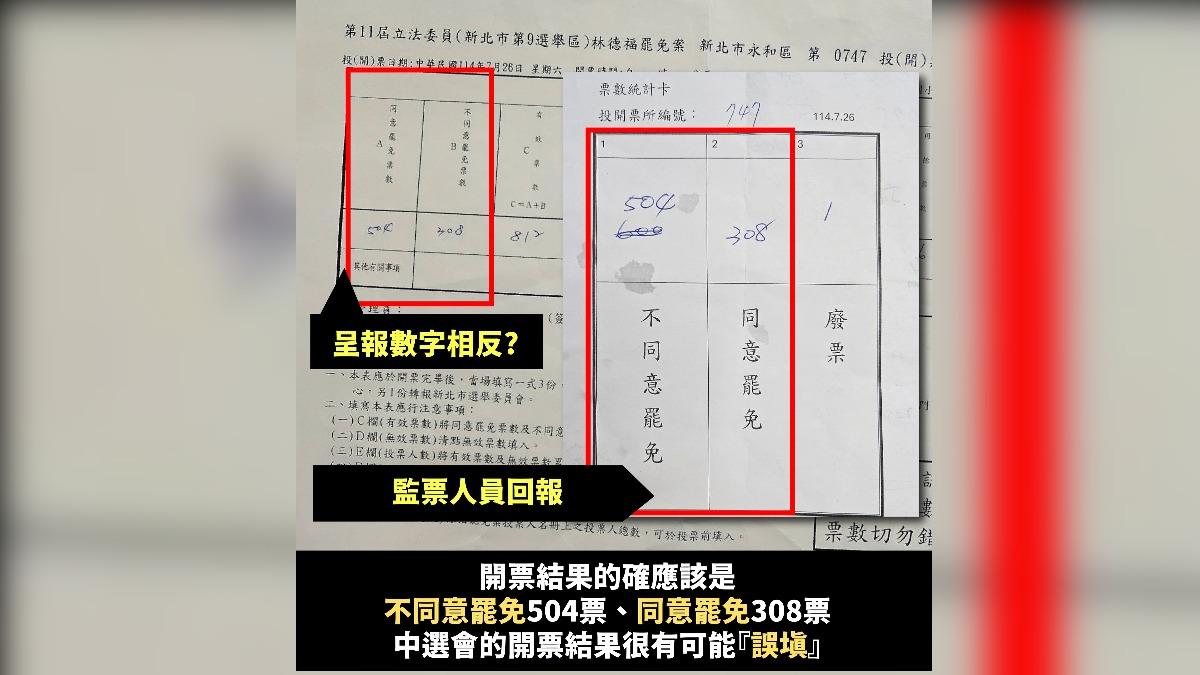 第11屆立法委員(新北市第9選舉區)林德福罷免案 新北市永和區 第 0747 投(開)
投(開)票日期:中華民國114年7月26日 星期六
同意罷免票數 A
不同意罷免票數 B
有效票數 C
C=A+B
504
308
812
其他有關事項
票數統計卡
投開票所編號：
747
114.7.26
1
2
3
504
600
308
1
不同意罷免
同意罷免
廢票
呈報數字相反?
一、本表應於開票完畢後，當場填寫一式3份，
心，另1份轉報新北市選舉委員會。
二、填寫本表應行注意事項：
(一)C欄(有效票數)將同意罷免票數及不同意
(二)D欄(無效票數)清點無效票數填入。
(三)E欄(投票人數)將有效票數及無效票數
監票人員回報
投票人名冊上之投票人總數，可於投票前填入。
票數切勿錯
開票結果的確應該是
不同意罷免504票、同意罷免308票
中選會的開票結果很有可能『誤塡』